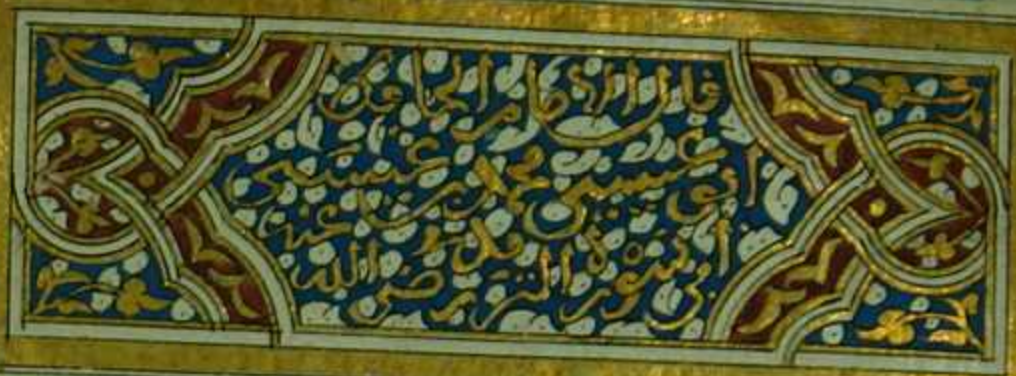 قال الامام الحافظ
ابو عيسى محمد بن عيسى
بن سورة الترمذي رضي الله عنه